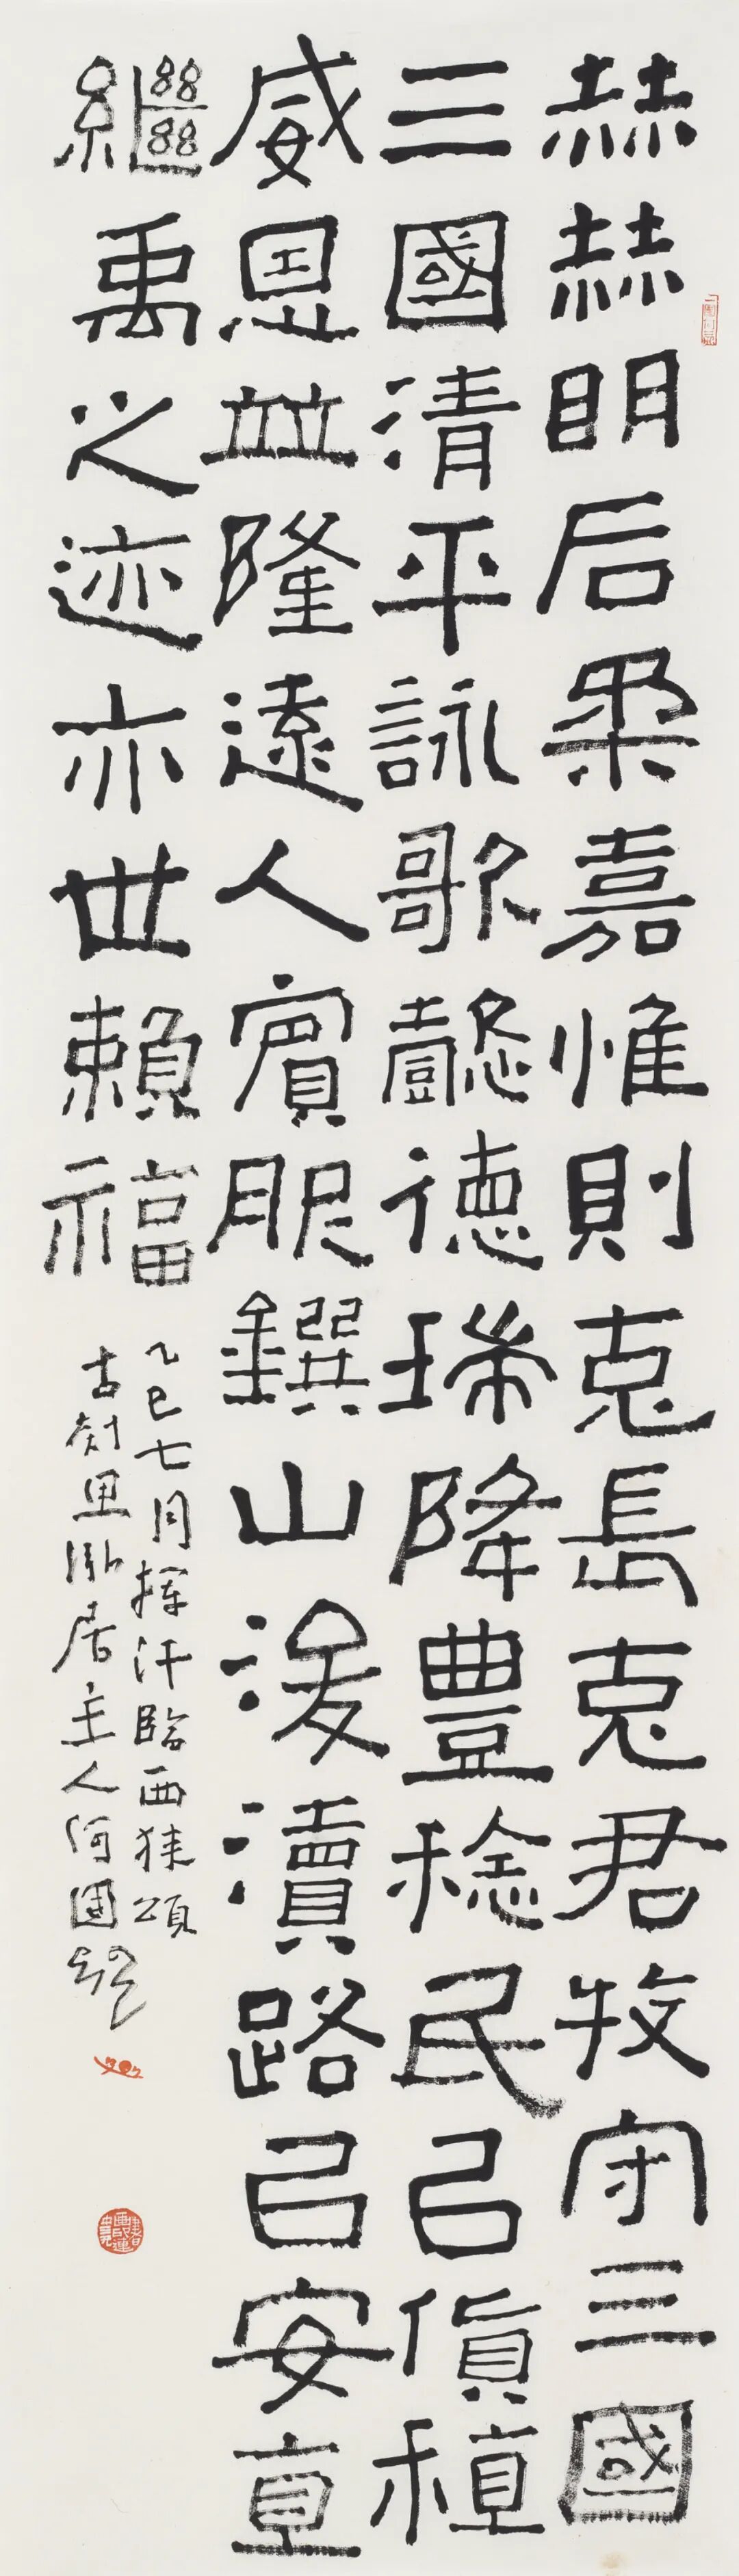 赫赫明后柔嘉惟則克長克君牧守三國
三國清平詠歌懿德瑞降豊稔民㠯貨稙
威恩並隆遠人賓服鐉山浚瀆路㠯安直
繼禹之迹亦世賴福
乙巳七月揮汗臨西狹頌
古里臥居主人何國